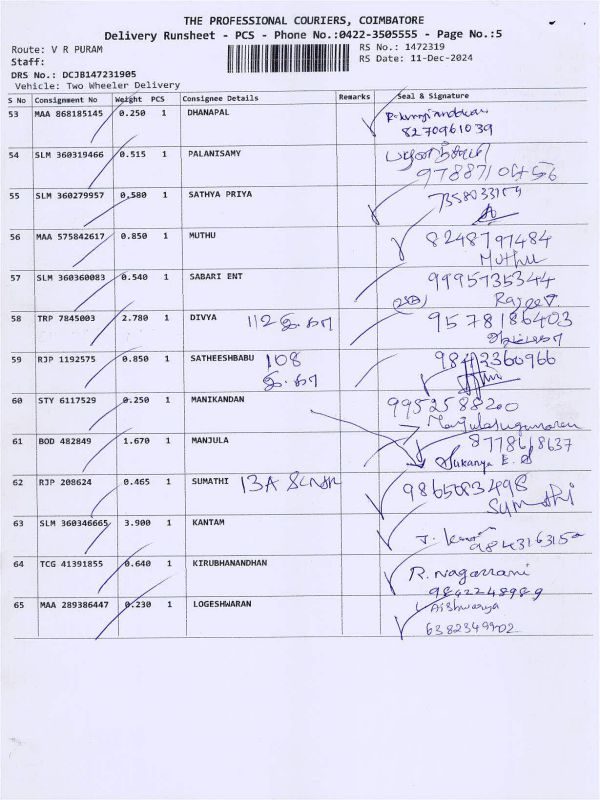 THE PROFESSIONAL COURIERS, COIMBATORE
Delivery Runsheet - PCS - Phone No.:0422-3505555 - Page No.:5
Route: V R PURAM
RS No.: 1472319
Staff:
RS Date: 11-Dec-2024
DRS No.: DCJB147231905
Vehicle: Two Wheeler Delivery
S No Consignment No Weight PCS Consignee Details Remarks Seal & Signature
53 MAA 868185145 0.250 1 DHANAPAL
8270961039
54 SLM 360319466 0.515 1 PALANISAMY
9788710456
55 SLM 360279957 0.580 1 SATHYA PRIYA
7358033154
56 MAA 575842617 0.850 1 MUTHU 8248797484
Muthu
57 SLM 360360083 0.540 1 SABARI ENT 9995735344
Rajeev
58 TRP 7845003 2.780 1 DIVYA 112 இ.கா 9578186403
59 RJP 1192575 0.850 1 SATHEESHBABU 108 9842360966
இ.கா
60 STY 6117529 0.250 1 MANIKANDAN 9952588200
61 BOD 482849 1.670 1 MANJULA 8778618637
Sukanya E.S
62 RJP 208624 0.465 1 SUMATHI 13A 9865083498
Sumathi
63 SLM 360346665 3.900 1 KANTAM
9843163152
64 TCG 41391855 0.640 1 KIRUBHANANDHAN R. nagarrani
9842248989
65 MAA 289386447 0.230 1 LOGESHWARAN Aishwarya
6382349902